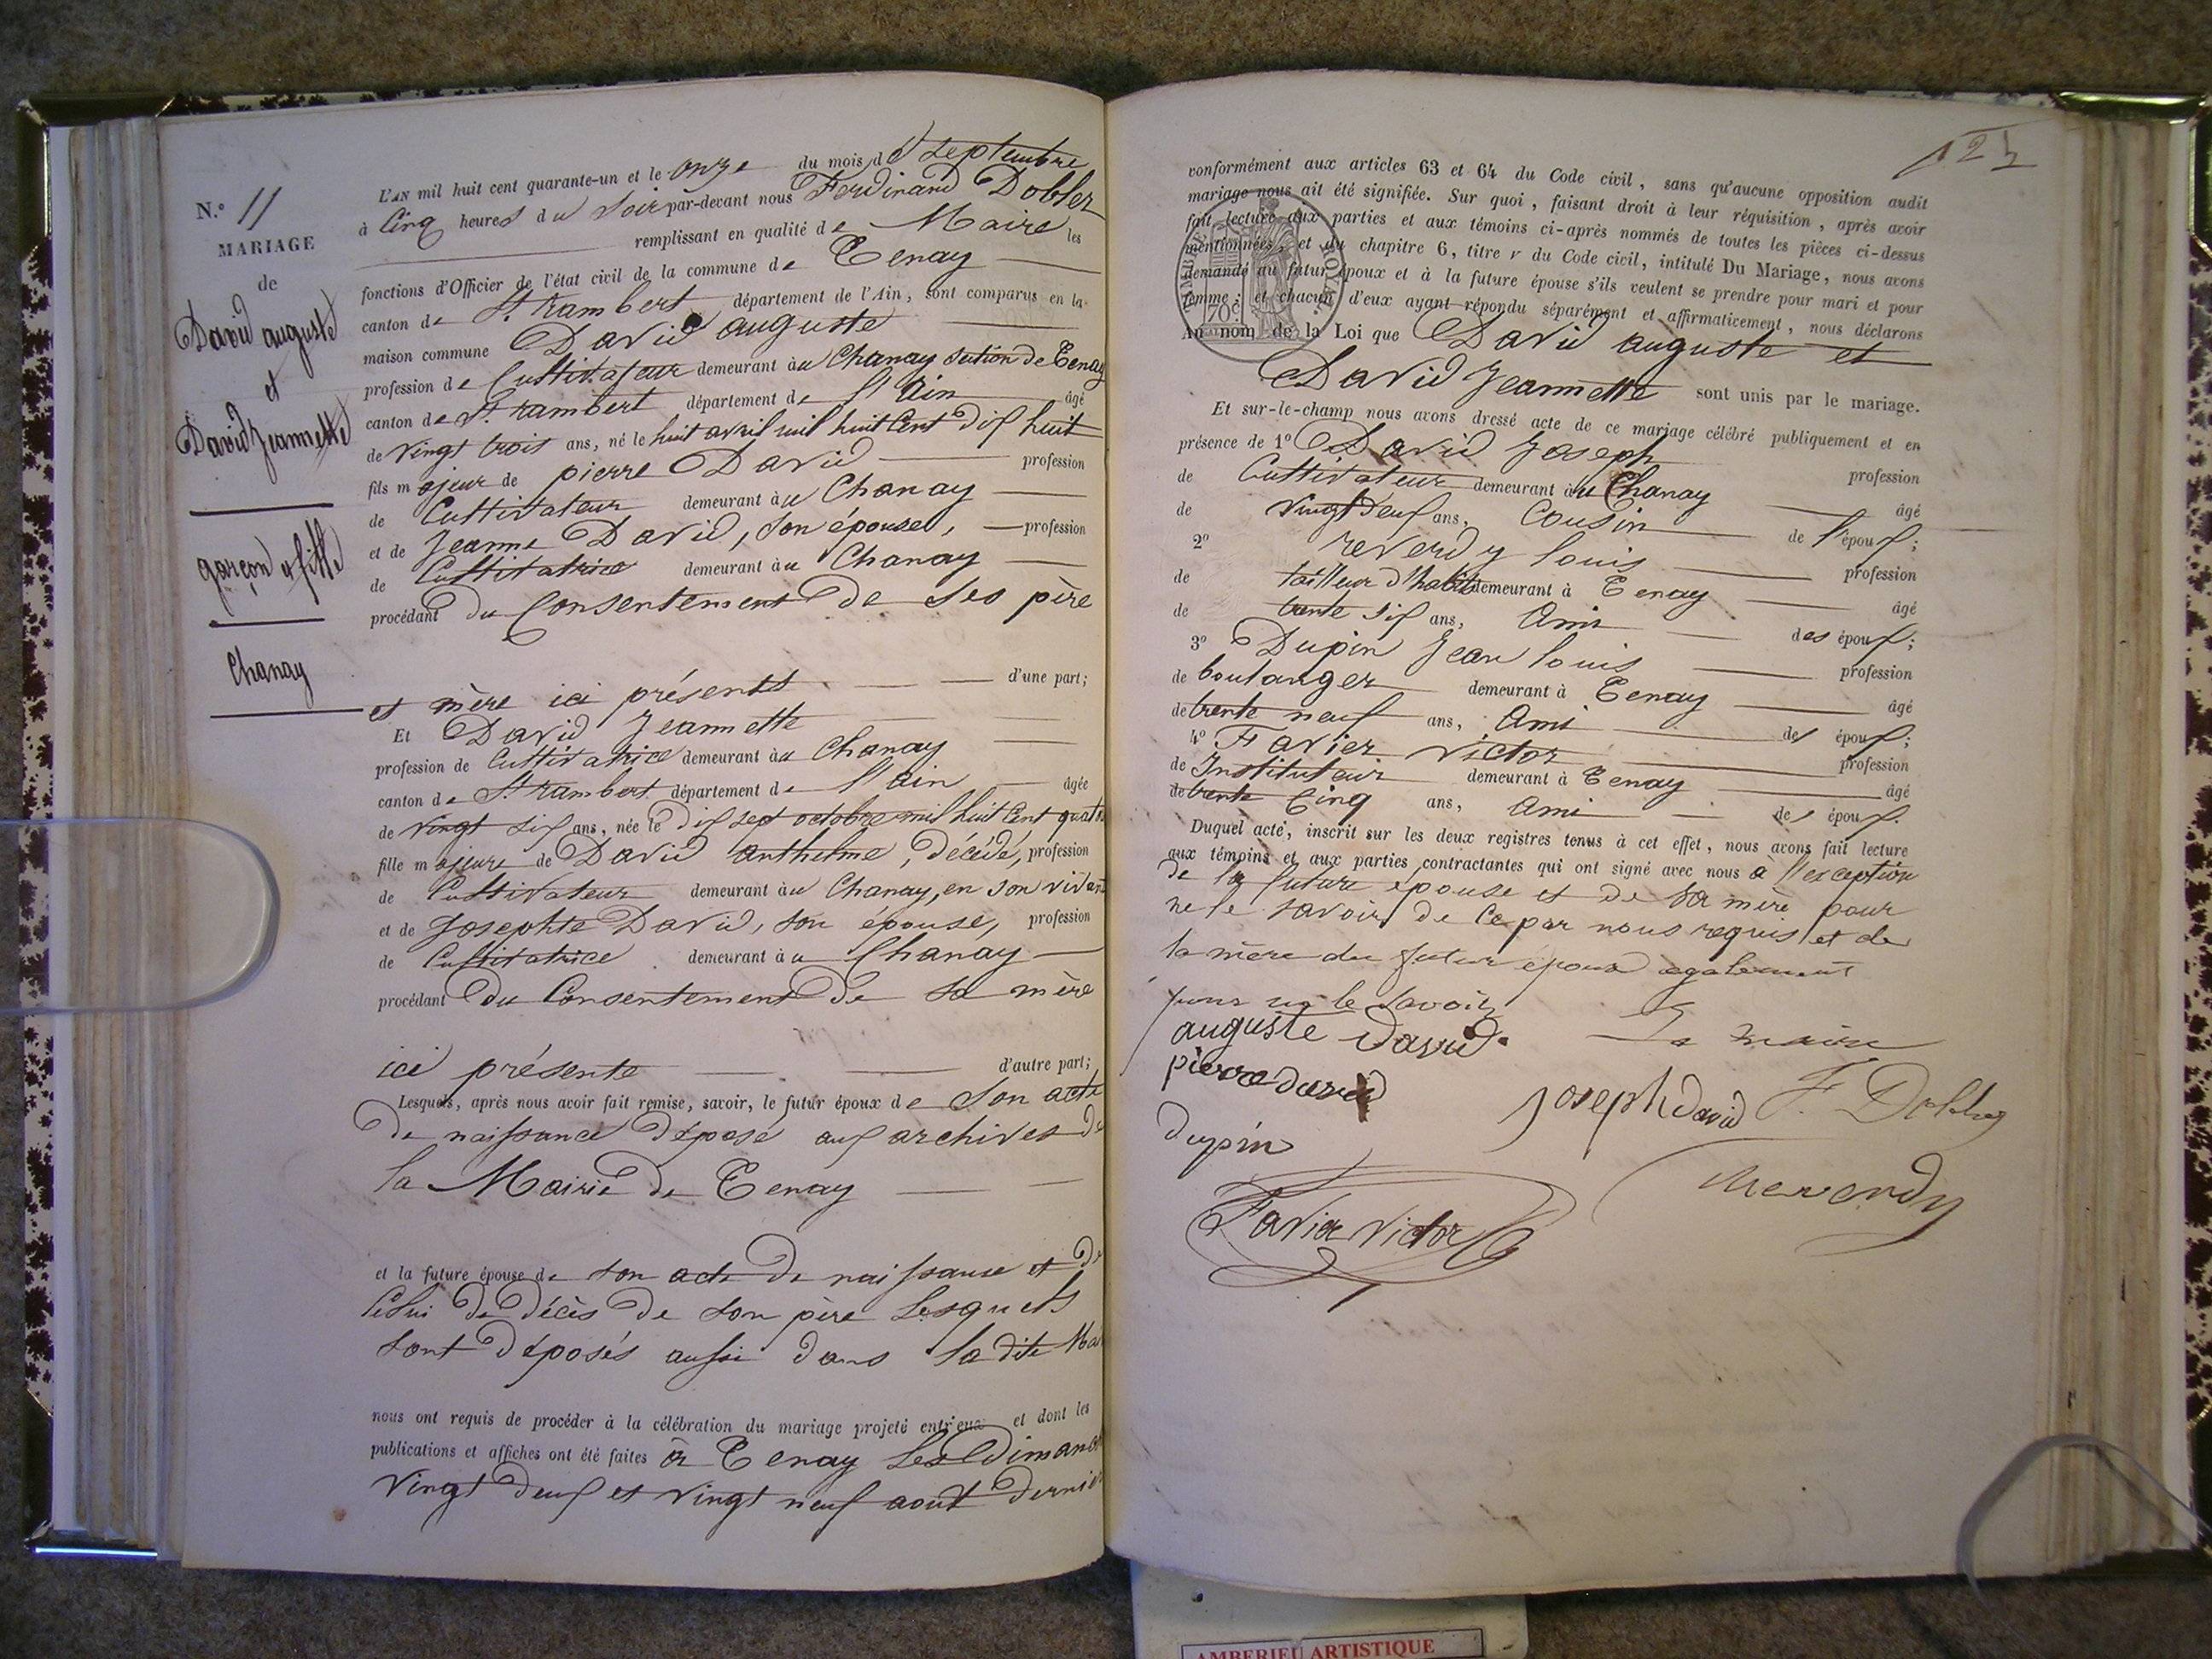 N.° 11
MARIAGE
de
David auguste
et
David Jeannette
garçon et fille
Chanay
L'AN mil huit cent quarante-un et le onze du mois de septembre
à Cinq heures du Soir par-devant nous Ferdinand Dobler
remplissant en qualité de Maire les
fonctions d'Officier de l'état civil de la commune de Tenay
canton de St. rambert département de l'Ain, sont comparus en la
maison commune David auguste
profession de Cultivateur demeurant au Chanay section de Tenay
canton de St. rambert département de l'ain âgé
de vingt trois ans, né le huit avril mil huit Cent dix huit
fils majeur de pierre David profession
de Cultivateur demeurant au Chanay
et de Jeanne David, son épouse, profession
de Cultivatrice demeurant au Chanay
procédant du Consentement de ses père
et mère ici présents d'une part;
Et David Jeannette
profession de Cultivatrice demeurant au Chanay
canton de St. rambert département de l'ain âgée
de vingt six ans, née le dix sept octobre mil huit Cent
fille majeure de David anthelme, décédé, profession
de Cultivateur demeurant au Chanay, en son vivant
et de Josephte David, son épouse, profession
de Cultivatrice demeurant au Chanay
procédant du Consentement de sa mère
ici présente d'autre part;
Lesquels, après nous avoir fait remise, savoir, le futur époux de son acte
de naissance déposé aux archives de
la Mairie de Tenay
et la future épouse de son acte de naissance et de
Celui de décès de son père Lesquels
sont déposés aussi dans la dite
nous ont requis de procéder à la célébration du mariage projeté entr'eux et dont les
publications et affiches ont été faites à Tenay Les
vingt deux et vingt neuf aout dernier
124
conformément aux articles 63 et 64 du Code civil, sans qu'aucune opposition audit
mariage nous ait été signifiée. Sur quoi, faisant droit à leur réquisition, après avoir
fait lecture aux parties et aux témoins ci-après nommés de toutes les pièces ci-dessus
mentionnées, et du chapitre 6, titre v du Code civil, intitulé Du Mariage, nous avons
demandé au futur époux et à la future épouse s'ils veulent se prendre pour mari et pour
femme; et chacun d'eux ayant répondu séparément et affirmativement, nous déclarons
TIMBRE ROYAL
70c
Au nom de la Loi que David auguste et
David Jeannette sont unis par le mariage.
Et sur-le-champ nous avons dressé acte de ce mariage célébré publiquement et en
présence de 1° David Joseph profession
de Cultivateur demeurant au Chanay âgé
de vingt neuf ans, Cousin de l'époux;
2° reverdy louis profession
de tailleur d'habits demeurant à Tenay âgé
de trente six ans, Ami des époux;
3° Dupin Jean louis profession
de boulanger demeurant à Tenay âgé
de trente neuf ans, Ami des époux;
4° Favier Victor profession
de Instituteur demeurant à Tenay âgé
de trente Cinq ans, Ami des époux.
Duquel acte, inscrit sur les deux registres tenus à cet effet, nous avons fait lecture
aux témoins et aux parties contractantes qui ont signé avec nous à l'exception
de la future épouse et de sa mère pour
ne le savoir de Ce par nous requis et de
la mère du futur époux également
pour ne le savoir
auguste david Le maire
pierre david
joseph david F. Dobler
dupin
Reverdy
Favier Victor
AMBERIEU ARTISTIQUE